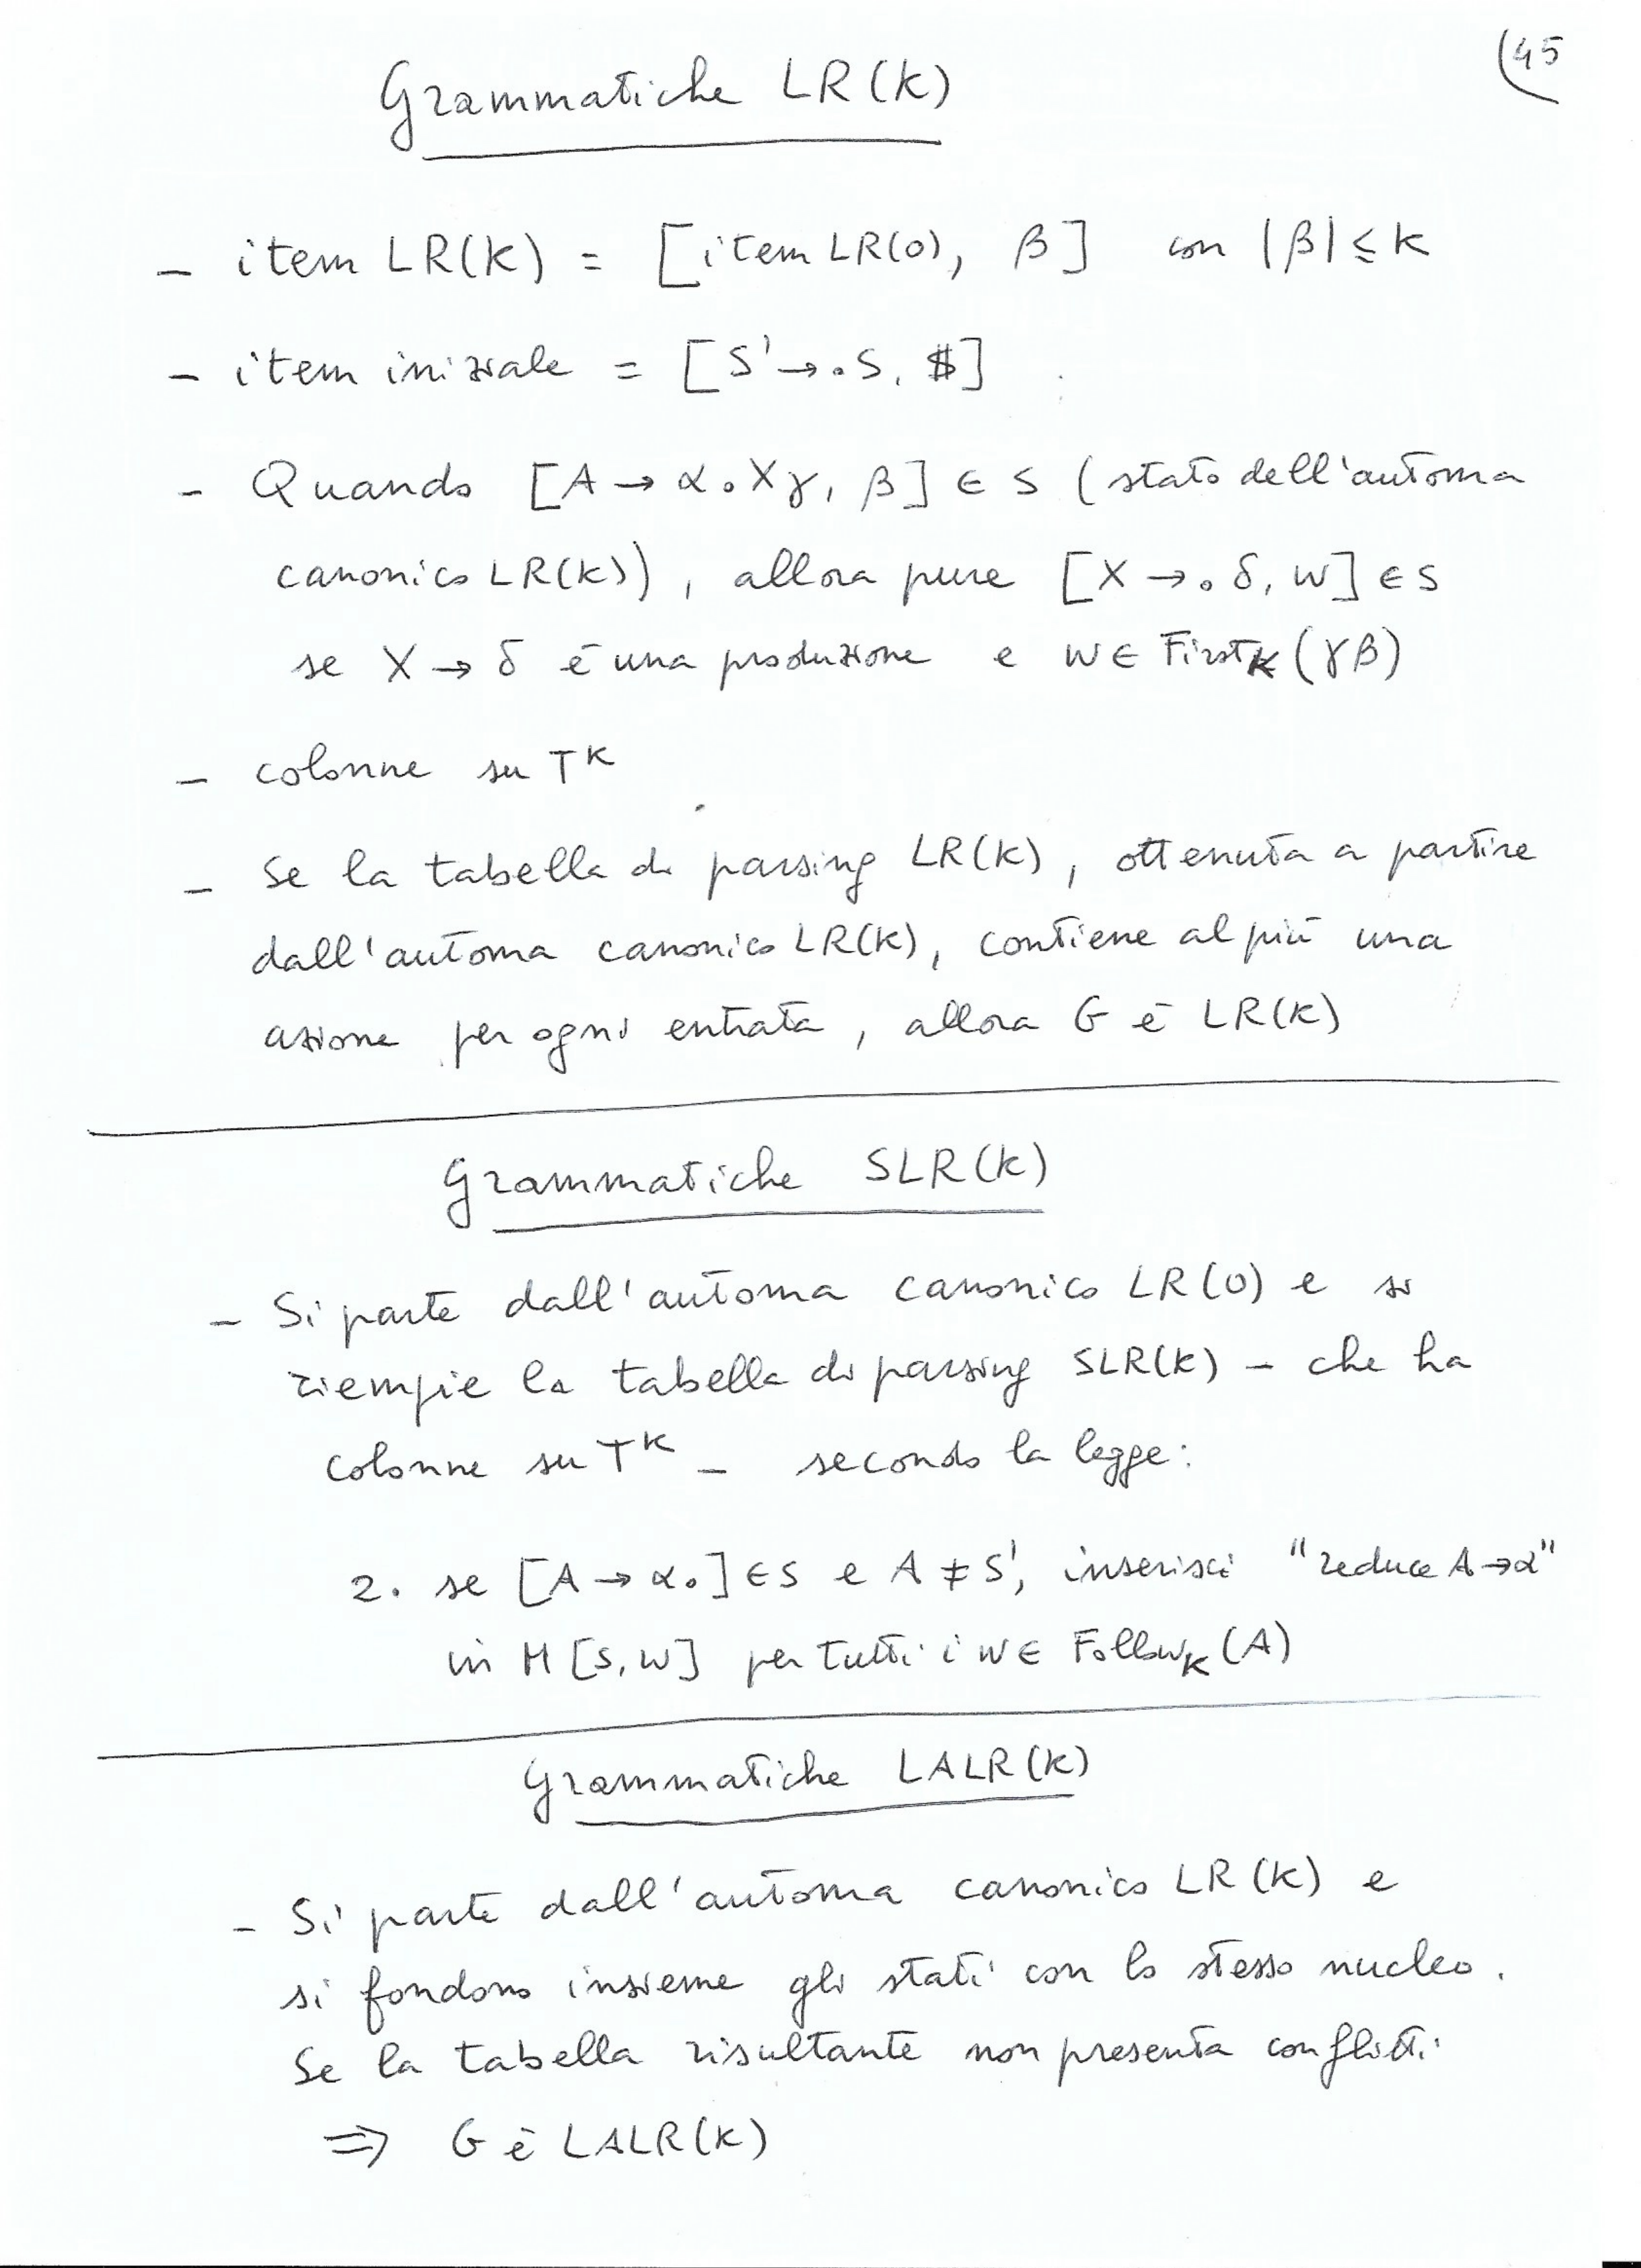 (45
Grammatiche LR(k)
- item LR(k) = [item LR(0), β] con |β| ≤ k
- item iniziale = [S' → .S, $]
- Quando [A → α.Xγ, β] ∈ S (stato dell'automa
canonico LR(k)), allora pure [X → .δ, w] ∈ S
se X → δ è una produzione e w ∈ Firstₖ(γβ)
- colonne su Tᵏ
- Se la tabella di parsing LR(k), ottenuta a partire
dall'automa canonico LR(k), contiene al più una
azione per ogni entrata, allora G è LR(k)
Grammatiche SLR(k)
- Si parte dall'automa canonico LR(0) e si
riempie la tabella di parsing SLR(k) - che ha
colonne su Tᵏ - secondo la legge:
2. se [A → α.] ∈ S e A ≠ S', inserisci "reduce A → α"
in M[S, w] per tutti i w ∈ Followₖ(A)
Grammatiche LALR(k)
- Si parte dall'automa canonico LR(k) e
si fondono insieme gli stati con lo stesso nucleo.
Se la tabella risultante non presenta conflitti
⇒ G è LALR(k)